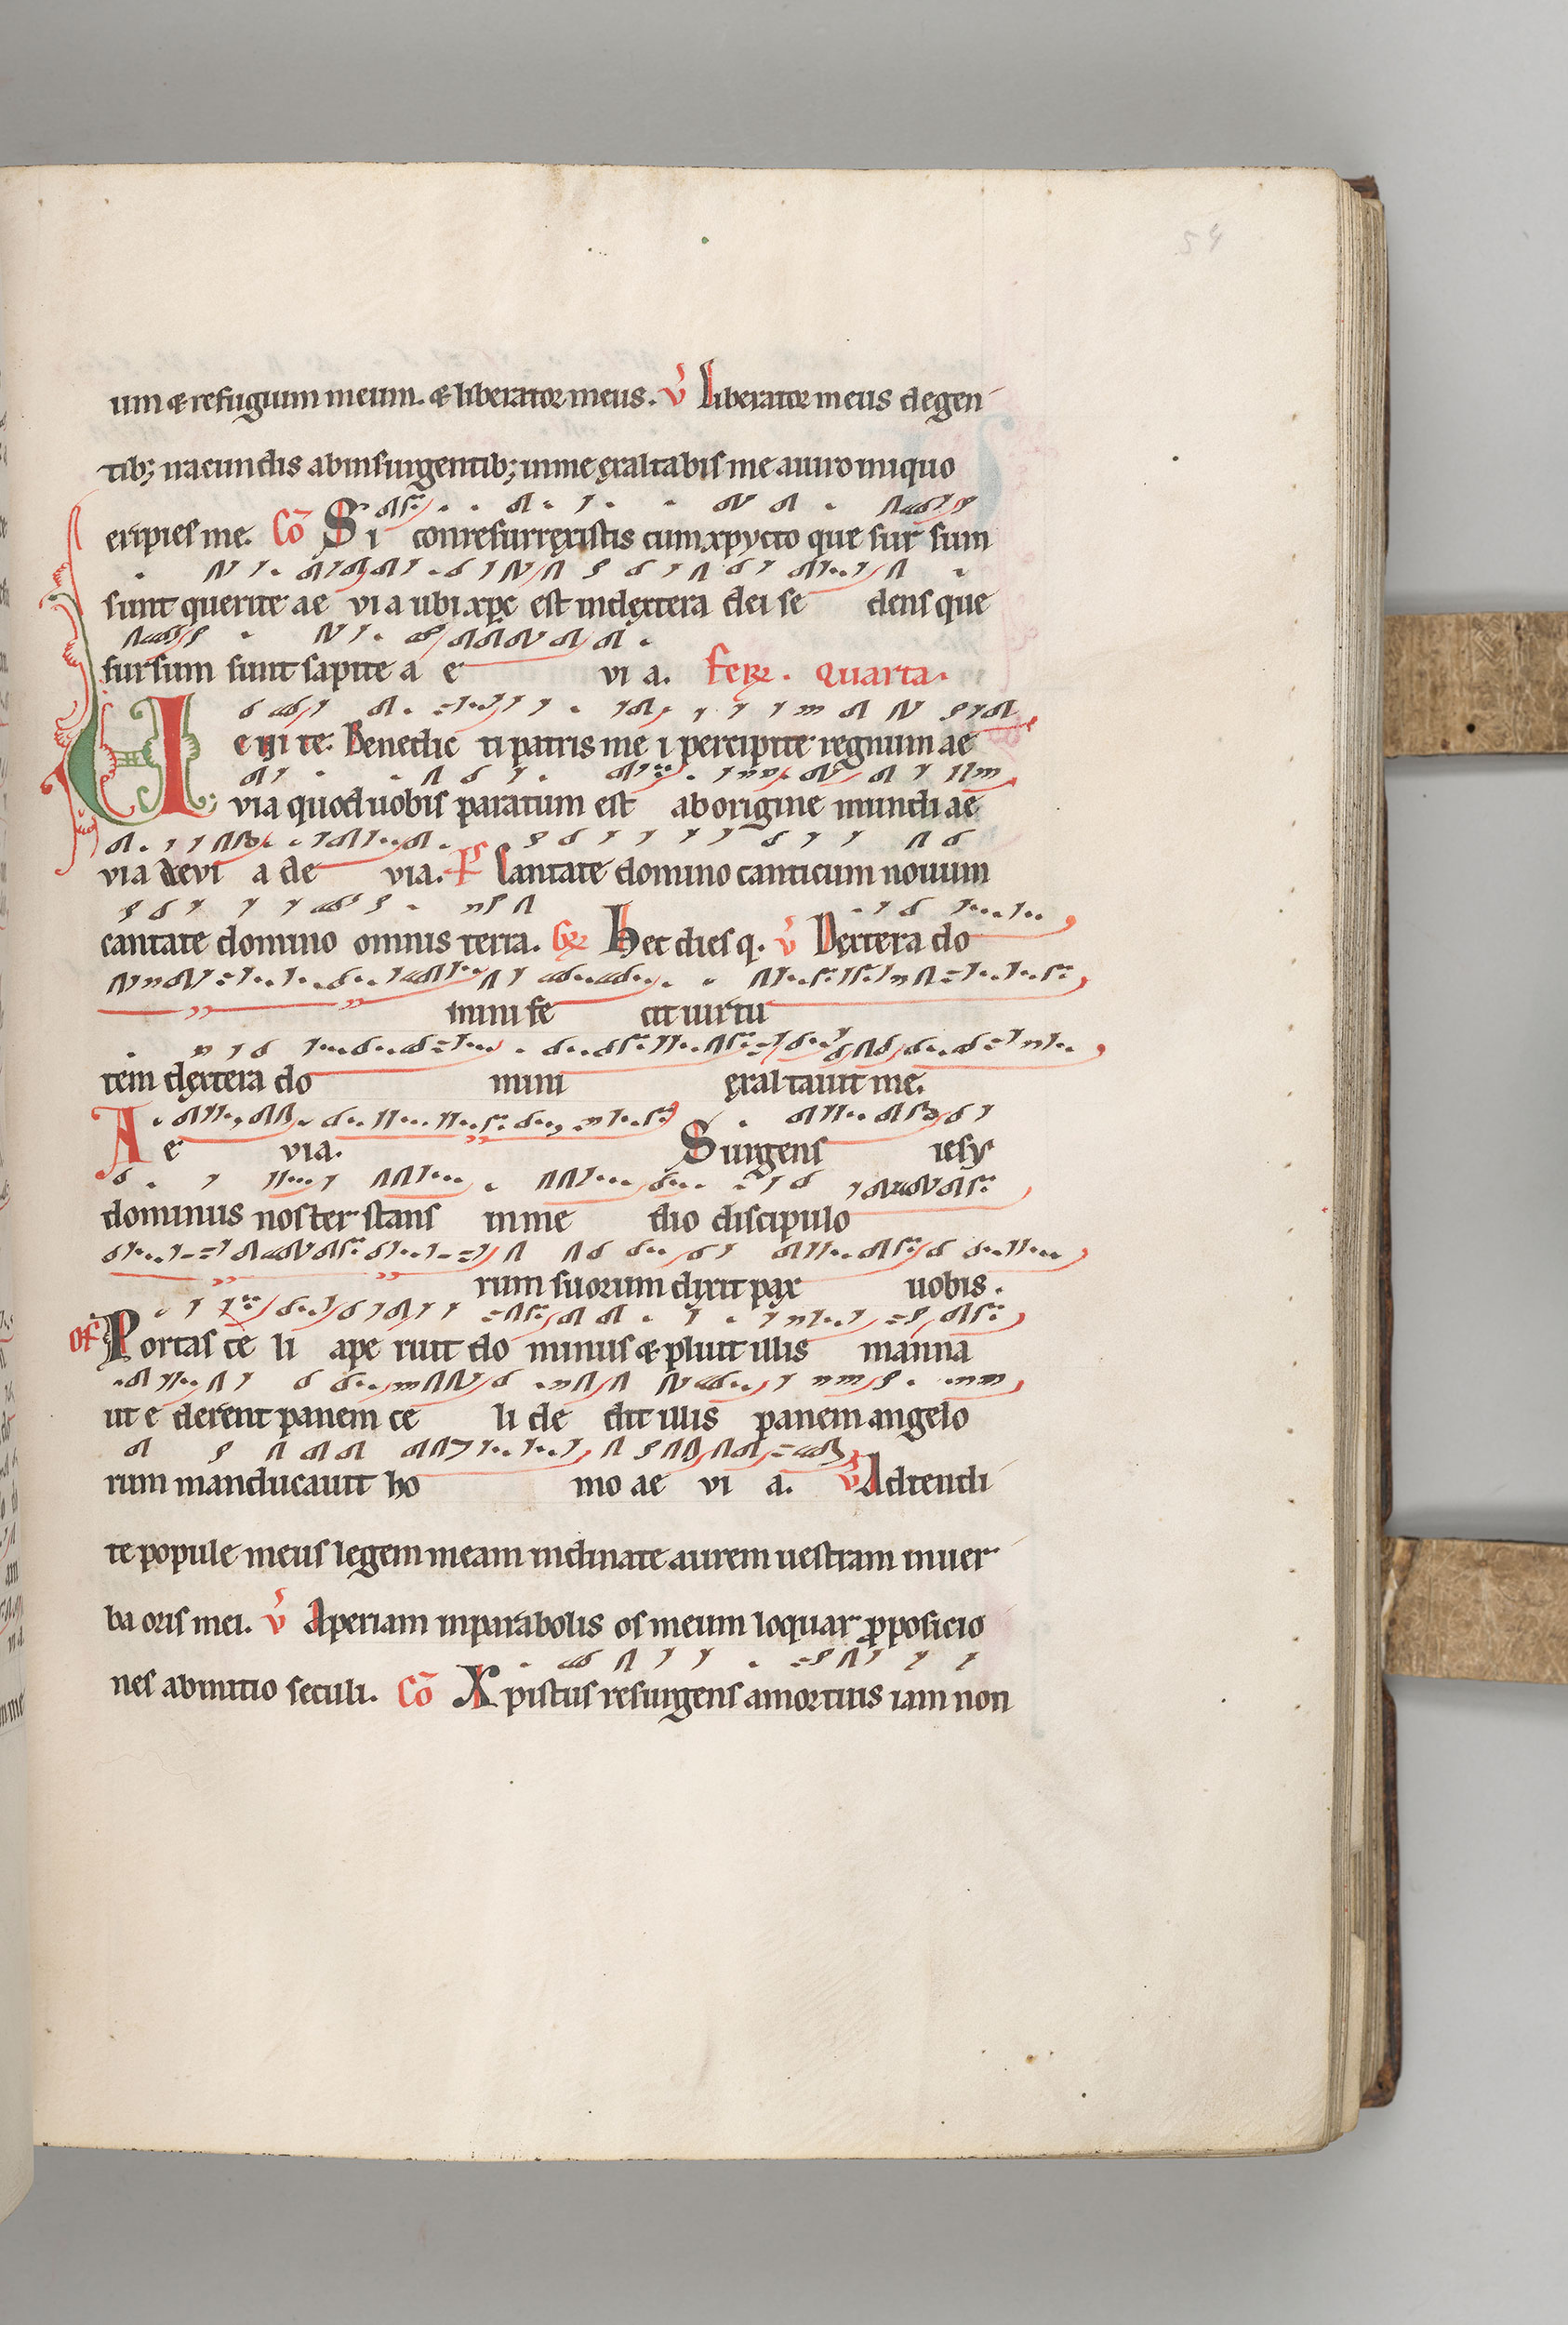 54
um & refugium meum. & liberator meus. v̄ Liberator meus de gen
tib; iracundis ab insurgentib; in me ęxaltabis me a uiro iniquo
eripies me. Cō Si conresurręxistis cum xpycto que sur sum
sunt querite ae vi a ubi xpc est in dęxtera dei se dens que
sursum sunt sapite a e vi a. Ferꝫ. quarta.
Uenite. Benedic ti patris me i percipite regnum ae
via quod uobis paratum est ab origine mundi ae
via aevi a ae via. Ps Cantate domino canticum nouum
cantate domino omnis terra. Gꝶ Hec dies q. v̄ Dęxtera do
mini fe cit uirtu
tem dęxtera do mini ęxal tauit me.
A e via. Surgens iesys
dominus noster stans in me dio discipulo
rum suorum dixit pax uobis.
Of Portas ce li ape ruit do minus & pluit illis manna
ut e derent panem ce li de dit illis panem angelo
rum manducauit ho mo ae vi a. v̄ Adtendi
te popule meus legem meam inclinate aurem uestram in uer
ba oris mei. v̄ Aperiam in parabolis os meum loquar ꝓposicio
nes ab initio seculi. Cō Xpistus resurgens a mortuis iam non